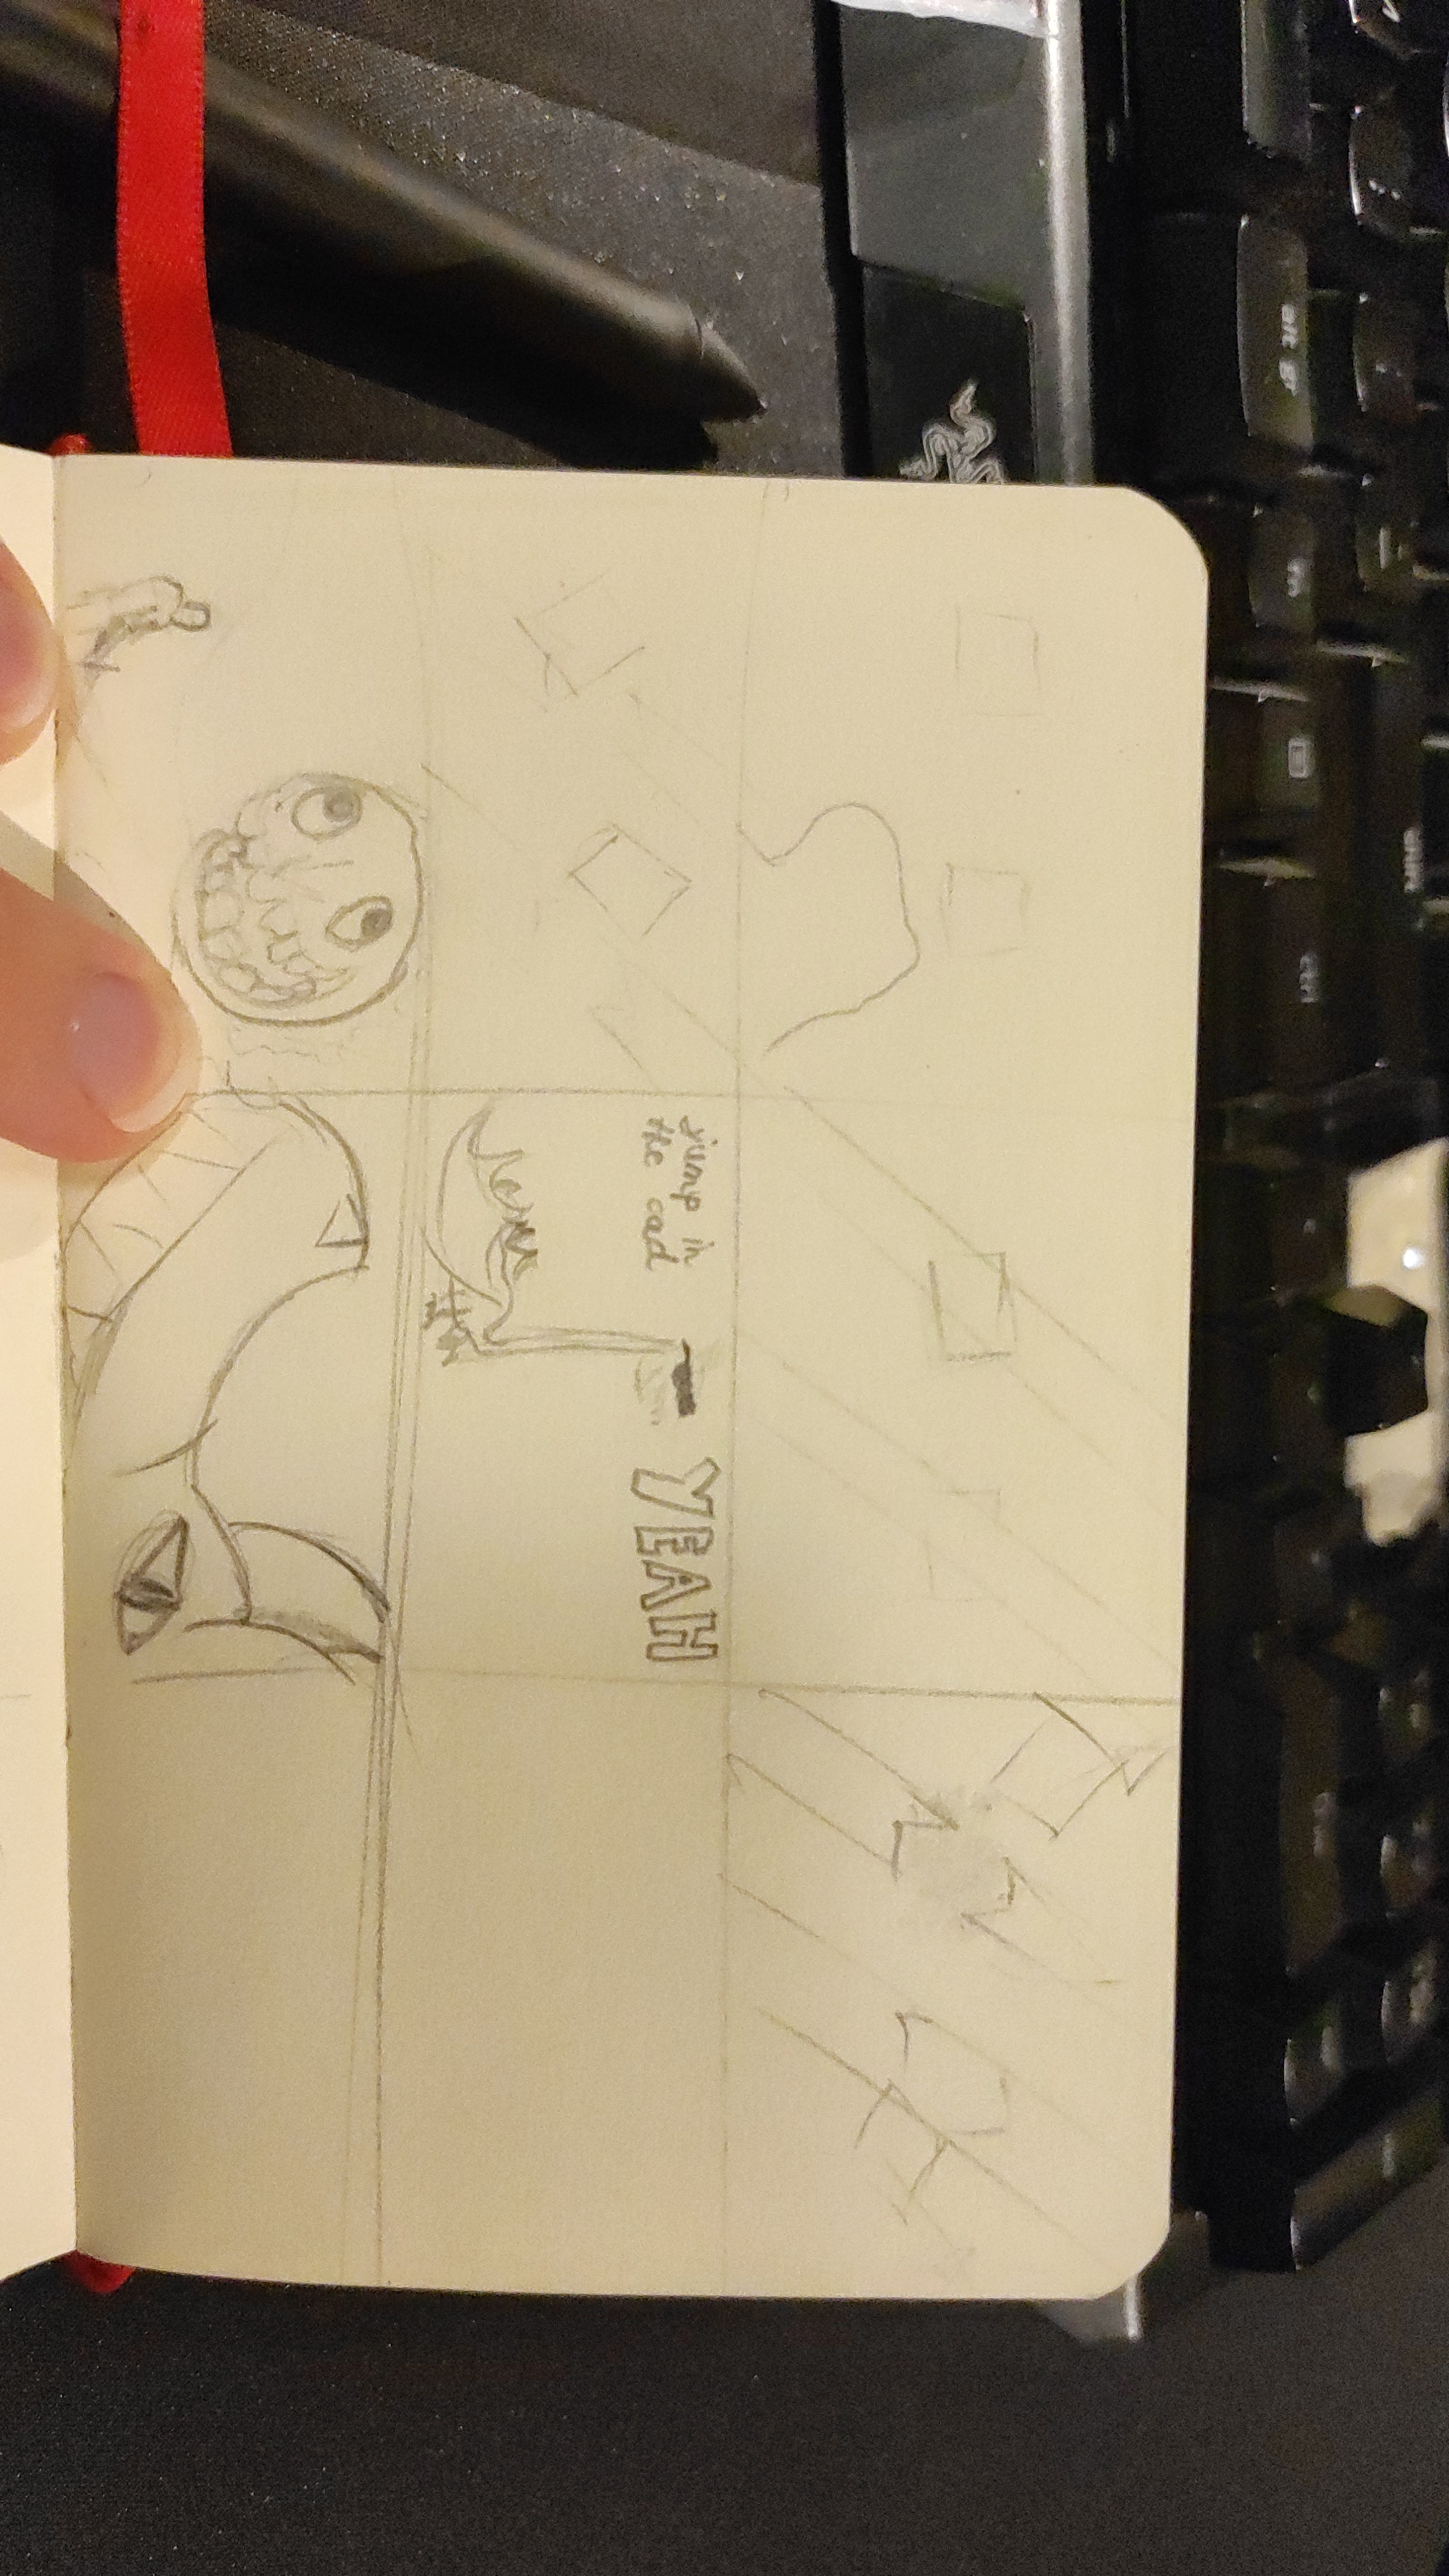 shift
alt gr
fn
ctrl
jump in
the cad
YEAH